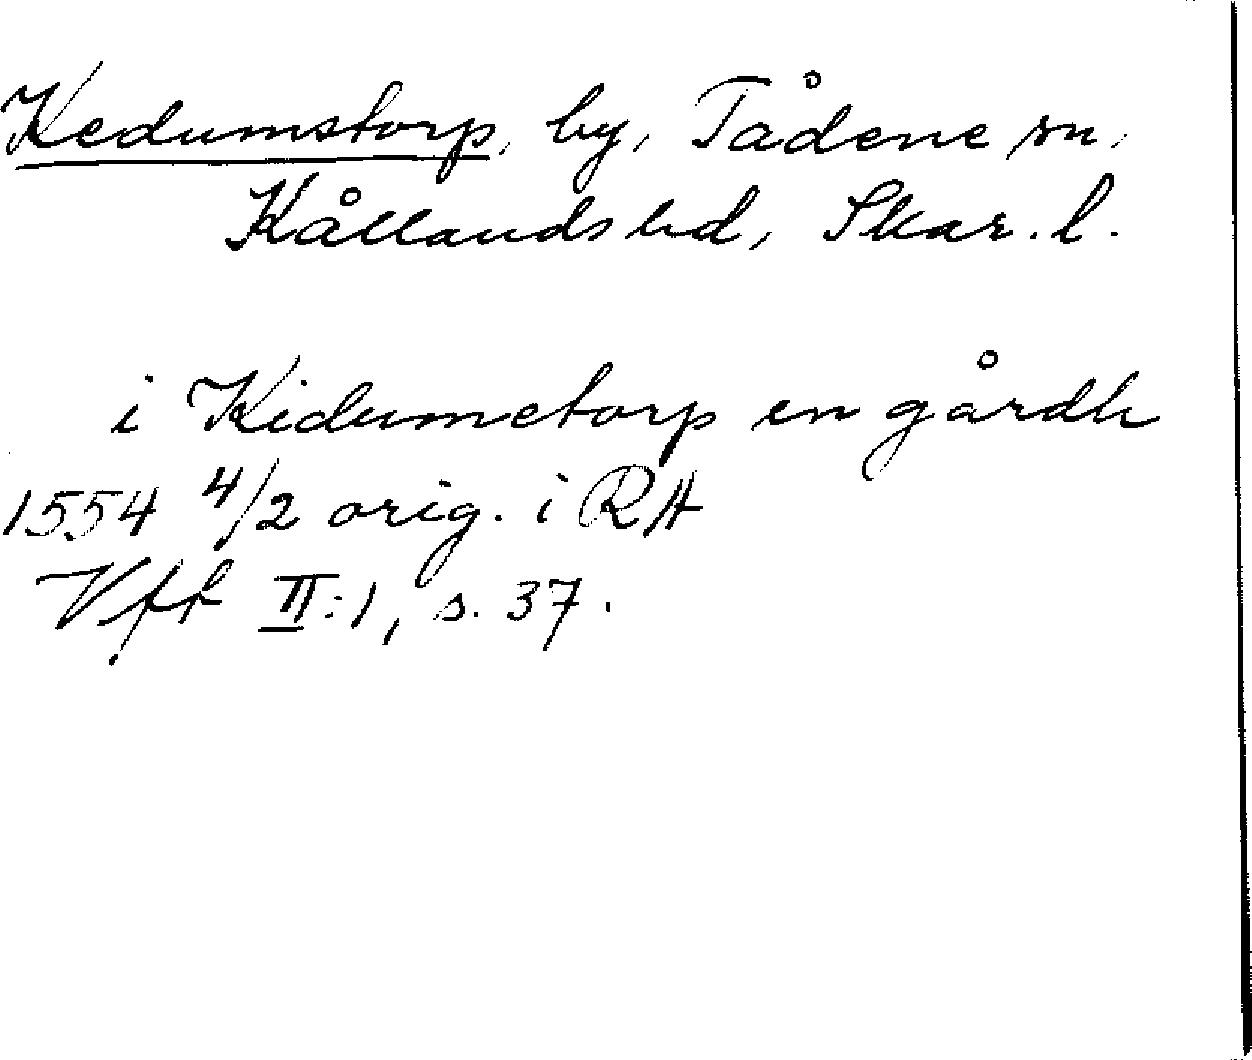 Kedumstorp, by, Tådene sn,
Kållands hd, Skar. l.
i Kidumetorp en gårdh
1554 4/2 orig. i RA
Vff II:1, s. 37.